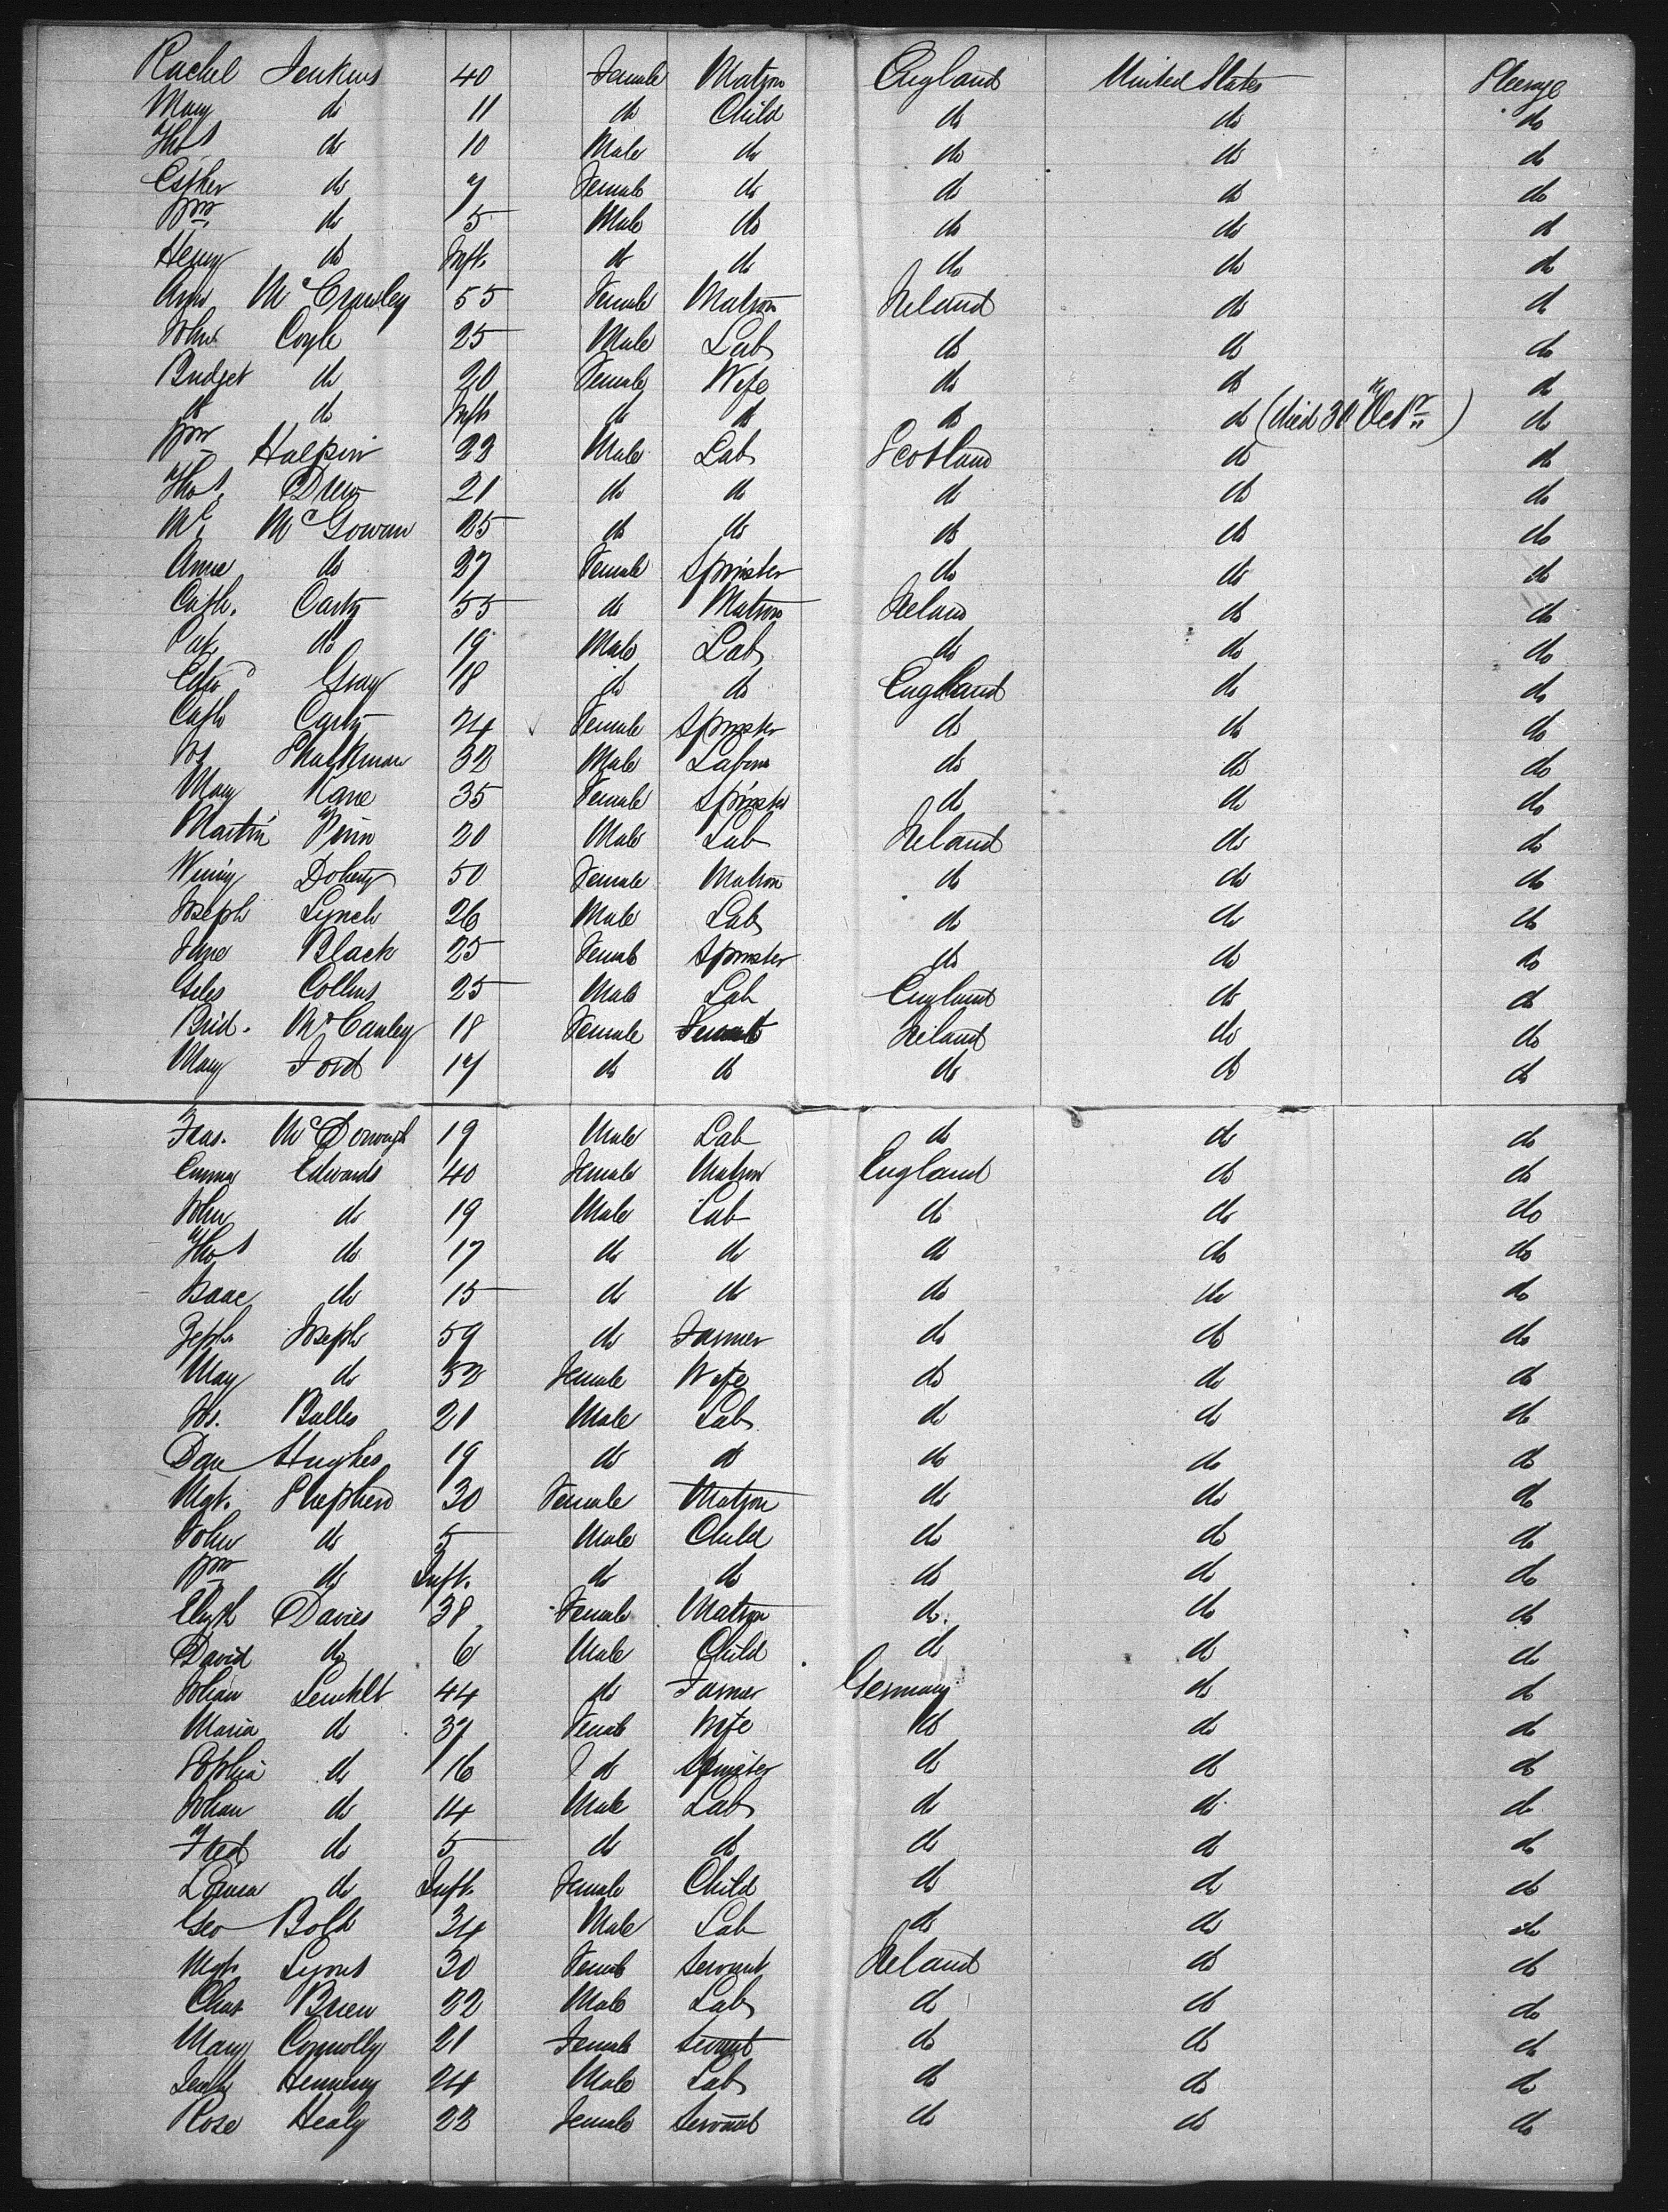 Rachel Jenkins 40 Female Matron England United States Steerage
Mary do 11 do Child do do do
Thos do 10 Male do do do do
Esther do 7 Female do do do do
Wm do 5 Male do do do do
Henry do Inft. do do do do do
Ann McCrawley 55 Female Matron Ireland do do
John Coyle 25 Male Lab do do do
Bridget do 20 Female Wife do do do
do do Inft do do do do (died 30th Octr) do
Wm Halpin 22 Male Lab Scotland do do
Thos. Drew 21 do do do do do
Ml McGowan 25 do do do do do
Anne do 27 Female Spinster do do do
Cath. Carty 55 do Matron Ireland do do
Pat do 19 Male Lab do do do
Gray 18 do do England do do
Cath Carty 24 Female Spinster do do do
Jos 32 Male Labour do do do
Mary Kane 35 Female Spinster do do do
Martin 20 Male Lab Ireland do do
Winny Doherty 50 Female Matron do do do
Joseph Lynch 26 Male Lab do do do
Jane Black 25 Female Spinster do do do
Giles Collins 25 Male Lab England do do
Brid. McCauley 18 Female Female Ireland do do
Mary Ford 17 do do do do do
Fras. McDonough 19 Male Lab do do do
Emma Edwards 40 Female Matron England do do
John do 19 Male Lab do do do
Thos do 17 do do do do do
Isaac do 15 do do do do do
Zeph Joseph 59 do Farmer do do do
Mary do 52 Female Wife do do do
Jos. Bulles 21 Male Lab do do do
Dan Hughes 19 do do do do do
Mgt. Shepherd 30 Female Matron do do do
John do 5 Male Child do do do
Wm do Inft. do do do do do
Elizth Davies 38 Female Matron do. do do
David do 6 Male Child do do do
Johan 44 do Farmer Germany do do
Maria do 37 Female Wife do do do
Sophia do 16 do Spinster do do do
Johan do 14 Male Lab do do do
Fred do 5 do do do do do
Louisa do Inft. Female Child do do do
Geo Bolt 34 Male Lab do do do
Mgt. Lyons 30 Female Servant Ireland do do
Chas Brien 22 Male Lab do do do
Mary Connolly 21 Female Servant do do do
Hennesy 24 Male Lab do do do
Rose Healy 22 Female Servant do do do